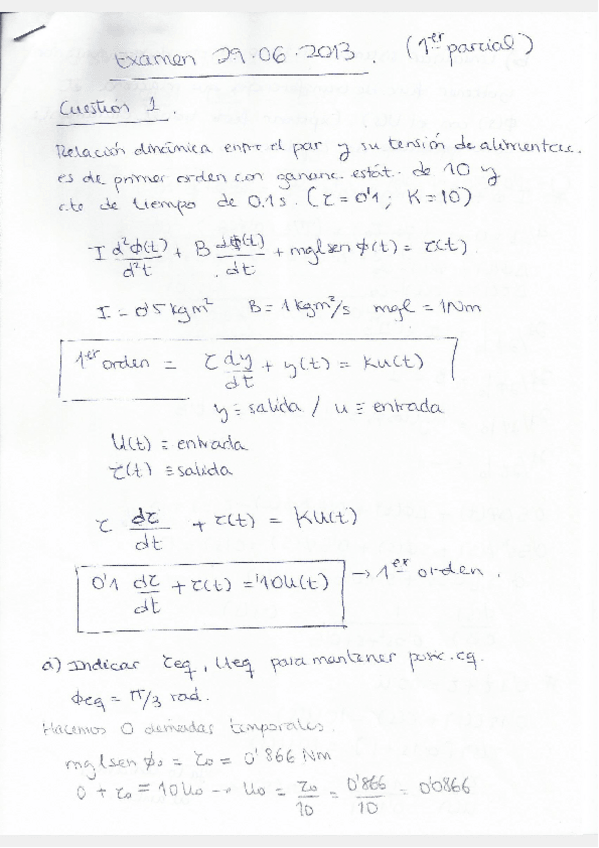 Examen 29.06.2013. (1er parcial)
Cuestión 1.
Relación dinámica entre el par y su tensión de alimentac.
es de primer orden con gananc. estát. de 10 y
cte de tiempo de 0.1s. (τ=0'1; K=10)
I d²ϕ(t)/d²t + B dϕ(t)/dt + mglsen ϕ(t) = τ(t)
I = 0'5 kgm² B = 1 kgm²/s mgl = 1Nm
1er orden = τ dy/dt + y(t) = Ku(t)
y ≡ salida / u ≡ entrada
U(t) ≡ entrada
τ(t) ≡ salida
τ dτ/dt + τ(t) = KU(t)
0'1 dτ/dt + τ(t) = 10U(t) → 1er orden.
a) Indicar τeq, Ueq para mantener posic. eq.
ϕeq = π/3 rad.
Hacemos 0 derivadas temporales.
mglsen ϕ₀ = τ₀ = 0'866 Nm
0 + τ₀ = 10U₀ → U₀ = τ₀/10 = 0'866/10 = 0'0866